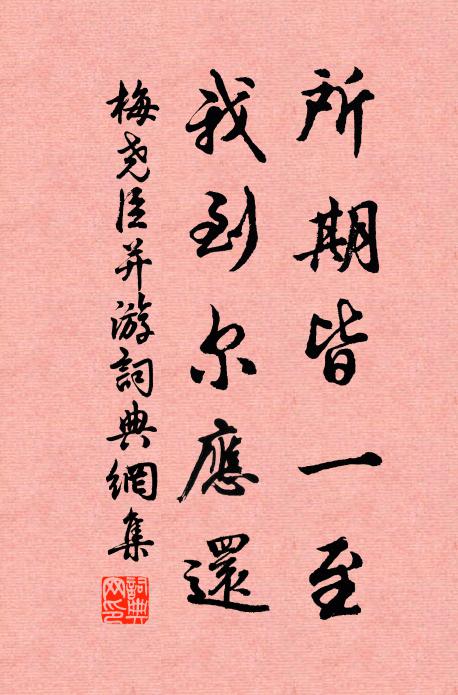 所期皆一至
我到尔應還
梅尧臣并游詞典網集
詞典网印